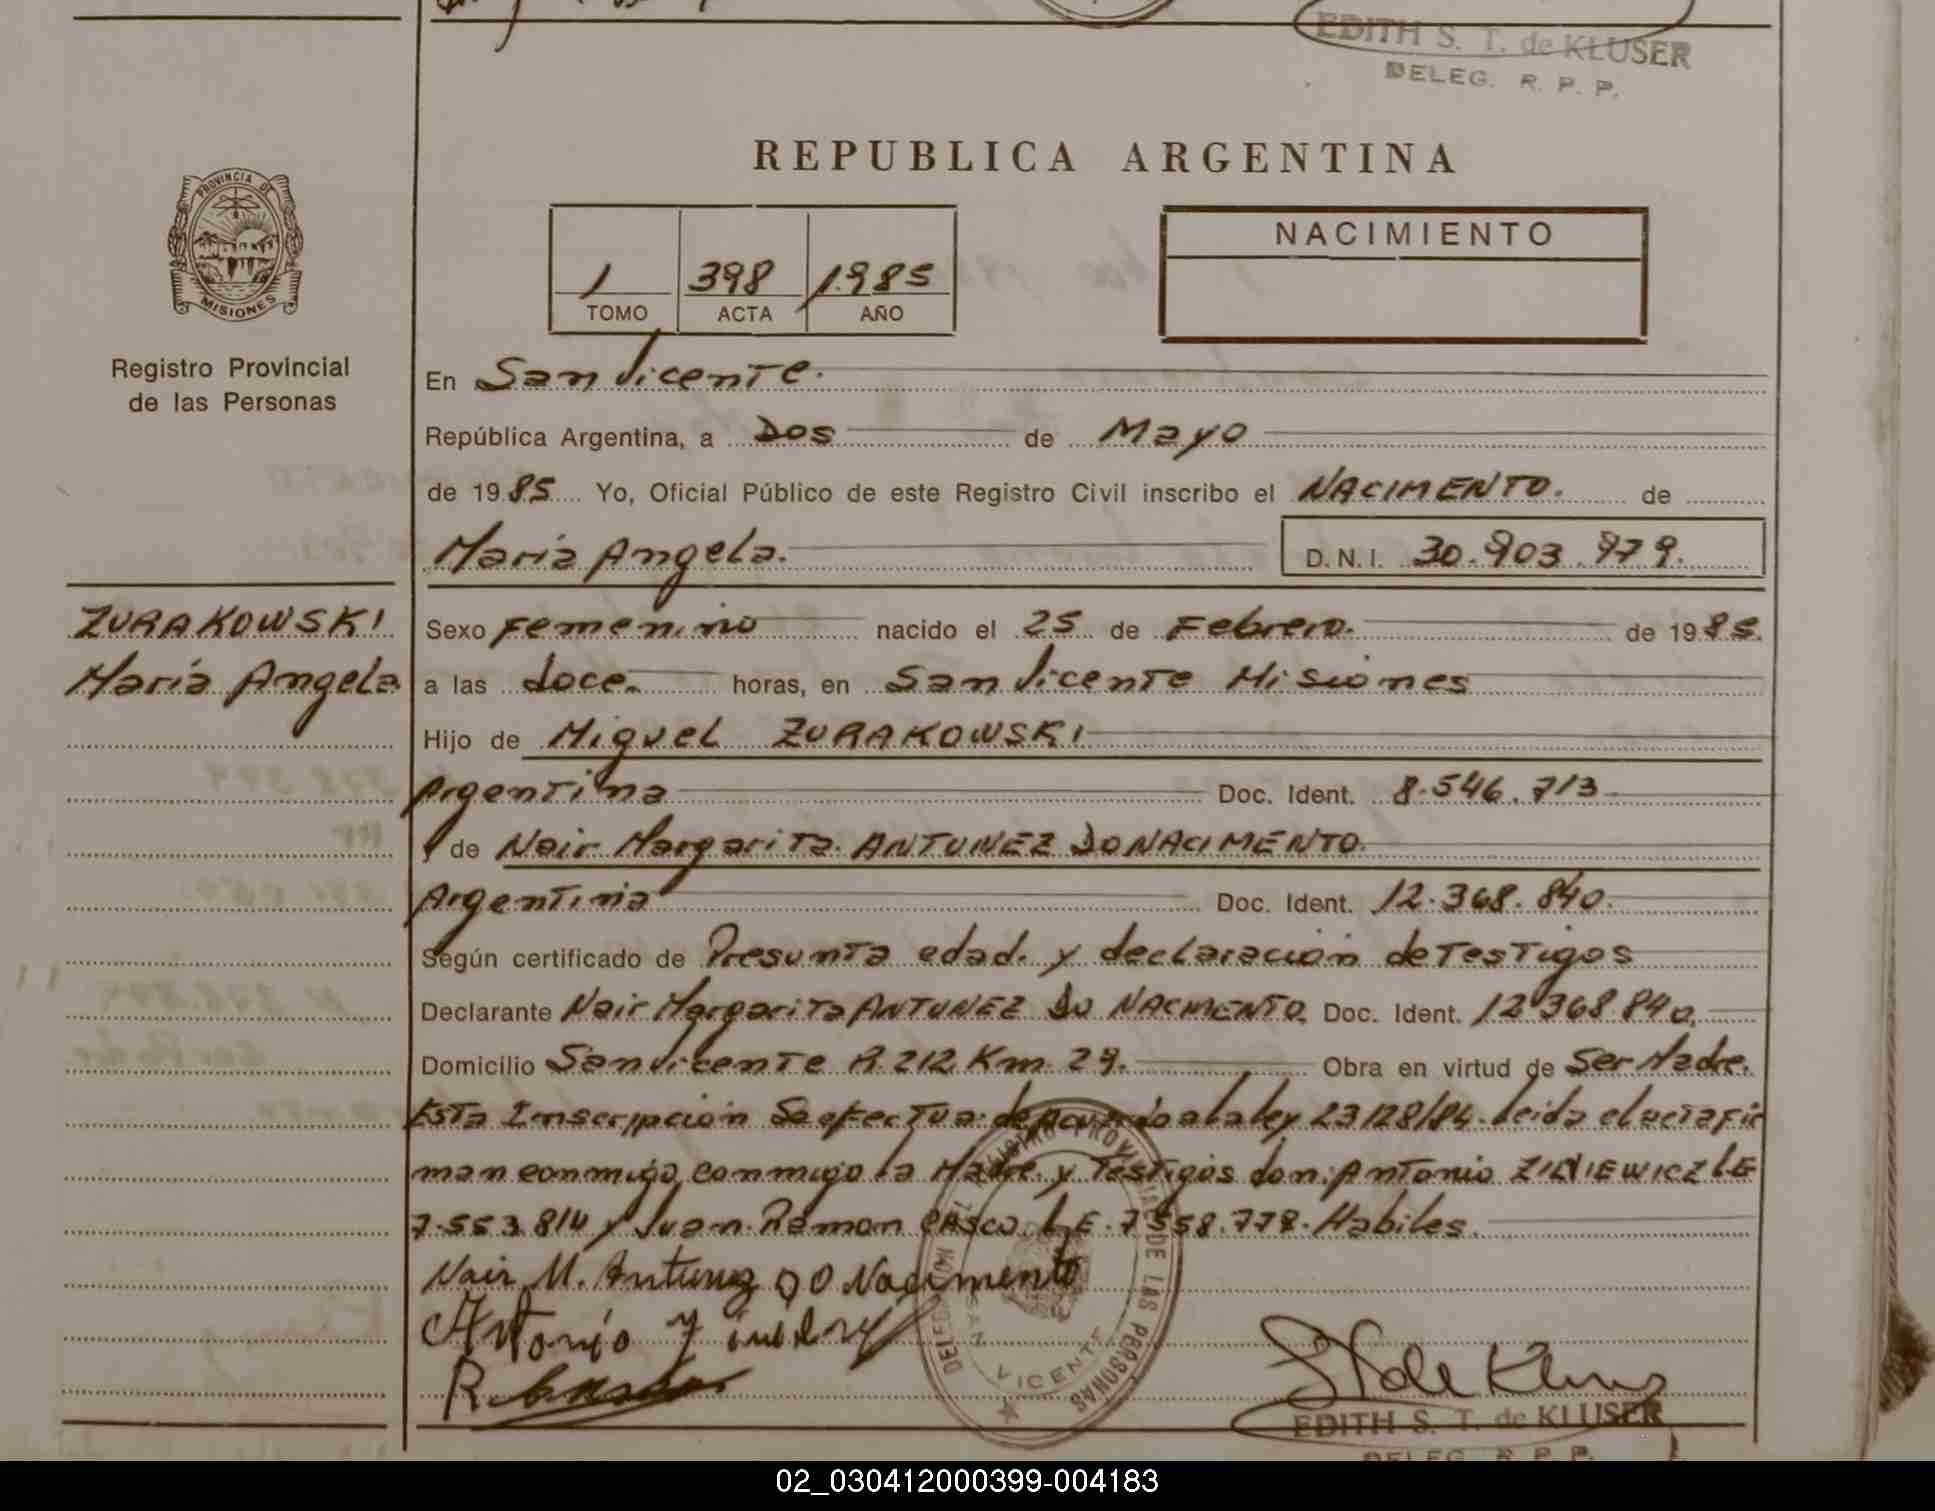 EDITH S. T. de KLUSER
DELEG. R. P. P.
REPUBLICA ARGENTINA
PROVINCIA DE
MISIONES
Registro Provincial
de las Personas
1 398 1985
TOMO ACTA AÑO
NACIMIENTO
En San Vicente.
República Argentina, a Dos de Mayo
de 1985 Yo, Oficial Público de este Registro Civil inscribo el NACIMENTO. de
Maria Angela. D.N.I. 30.903.979.
ZURAKOWSKI
Maria Angela
Sexo Femenino nacido el 25 de Febrero. de 1985.
a las doce. horas, en San Vicente Misiones
Hijo de Miguel ZURAKOWSKI
Argentina Doc. Ident. 8.546.713
y de Nair Margarita ANTUNEZ DO NACIMENTO.
Argentina Doc. Ident. 12.368.840.
Según certificado de Presunta edad. y declaración de Testigos
Declarante Nair Margarita ANTUNEZ DO NACIMENTO. Doc. Ident. 12 368 840.
Domicilio San Vicente R. 212 Km 29. Obra en virtud de Ser Madre.
Esta Inscripcion Se efectua de acuerdo a la ley 23128/84. leida el acta fir
man conmigo conmigo la Madre. y Testigos don: Antonio LE
7.553.814 y Juan Ramon CASCO. L.E. 7558.778. Habiles.
Nair M. Antunez DO Nacimento
Antonio
R.
REGISTRO PROVINCIAL DE LAS PERSONAS
SAN VICENTE
EDITH S. T. de KLUSER
DELEG. R. P. P.
02_030412000399-004183